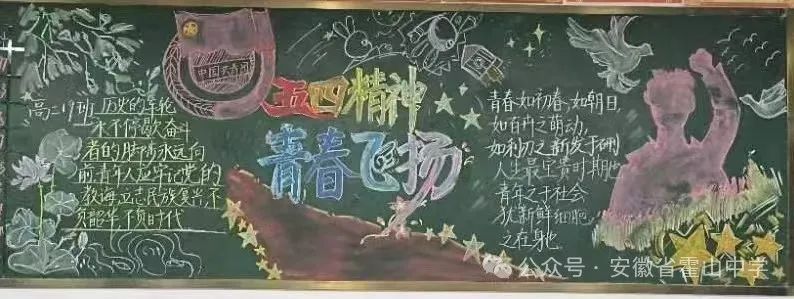 中国共青团
五四精神
青春飞扬
高二19班 历史的车轮
永不停歇奋斗
者的脚步永远向
前青年人应牢记党的
教诲立志民族复兴不
负韶华不负时代
青春如初春,如朝日,
如百卉之萌动,
如利刃之新发于硎
人生最宝贵时期也
青年之于社会
犹新鲜细胞
之在身也
公众号·安徽省霍山中学